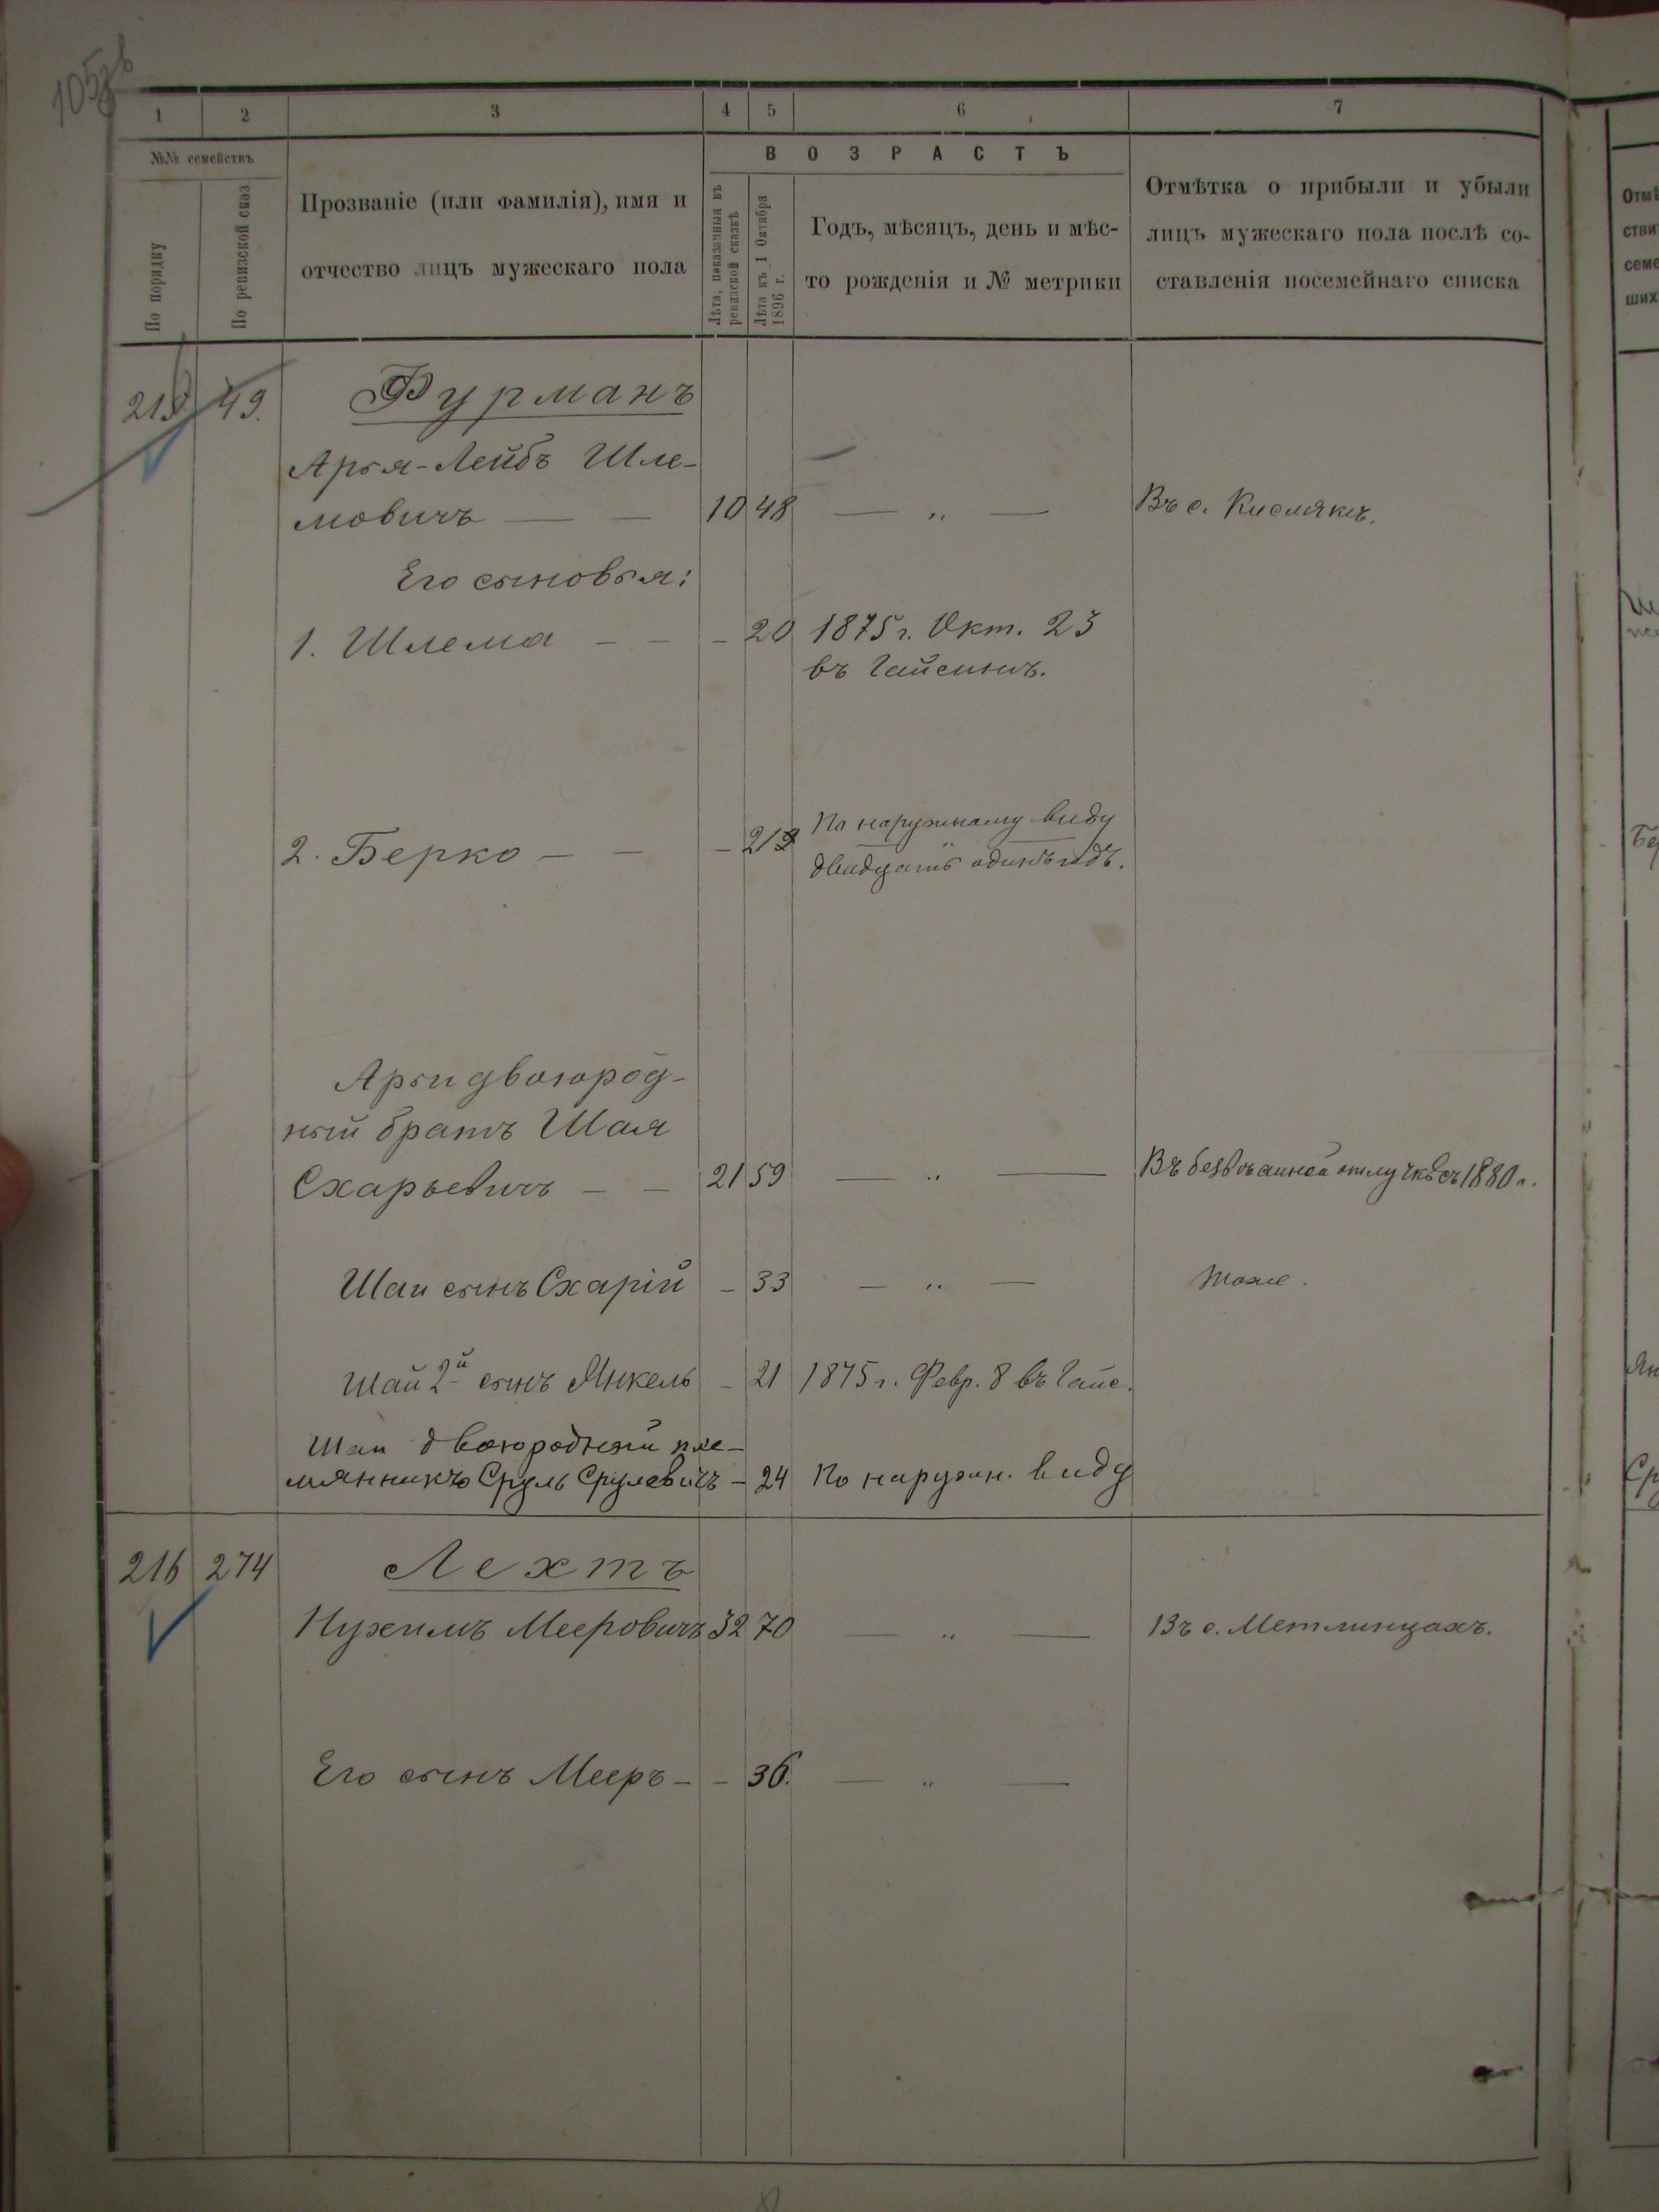 105зв
1 2 3 4 5 6 7
№№ семействъ
По порядку
По ревизской сказ
Прозваніе (или фамилія), имя и
отчество лицъ мужескаго пола
ВОЗРАСТЪ
Лѣта, показанныя въ
ревизской сказкѣ
Лѣта къ 1 Октября
1896 г.
Годъ, мѣсяцъ, день и мѣс-
то рожденія и № метрики
Отмѣтка о прибыли и убыли
лицъ мужескаго пола послѣ со-
ставленія посемейнаго списка
215 49. Фурманъ
Арья-Лейбъ Шле-
мовичъ — — 10 48 — „ — Въ с. Кислякѣ.
Его сыновья:
1. Шлема — — – 20 1875 г. Окт. 23
въ Гайсинѣ.
2. Берко — — – 21 По наружному виду
двадцать одинъ годъ.
Арьи двоюрод-
ный братъ Шая
Схарьевичъ — — 21 59 — „ — Въ безвѣстной отлучкѣ съ 1880 г.
Шаи сынъ Схарій – 33 — „ — тоже.
Шаи 2й сынъ Янкель – 21 1875 г. Февр. 8 въ Гайс.
Шаи двоюродный пле-
мянникъ Сруль Срулевичъ – 24 По наружн. виду
216 274 Лехтъ
Нухимъ Мееровичъ 32 70 — „ — Въ с. Метлинцахъ.
Его сынъ Мееръ – – 36. — „ —